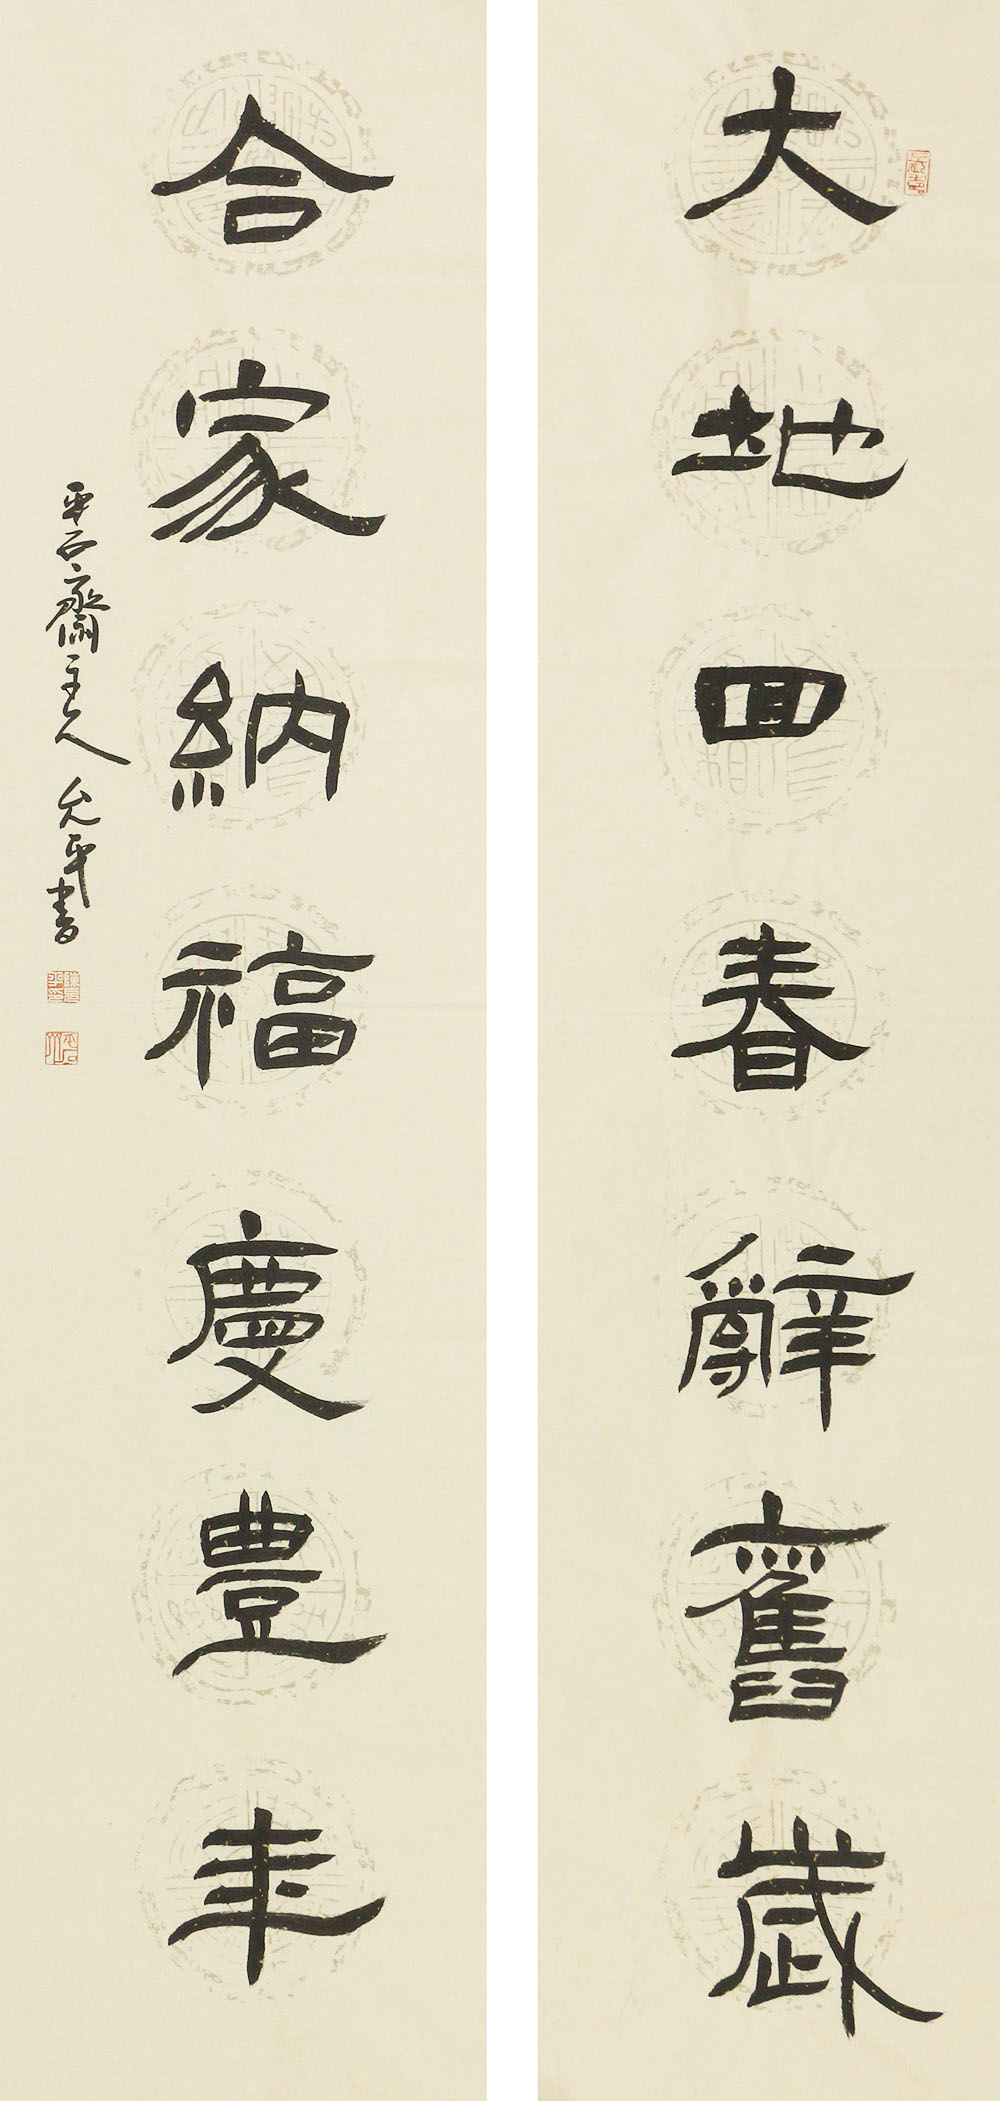 大地回春辭舊歲
合家納福慶豐年
平石齋主人允平書